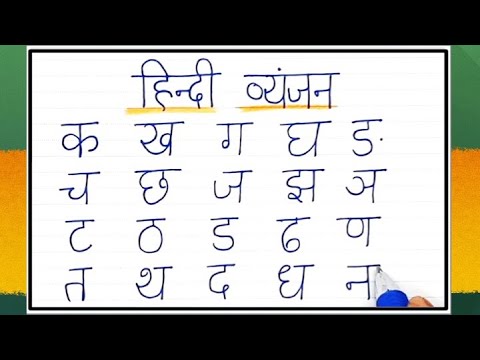 हिन्दी व्यंजन
क ख ग घ ङ
च छ ज झ ञ
ट ठ ड ढ ण
त थ द ध न